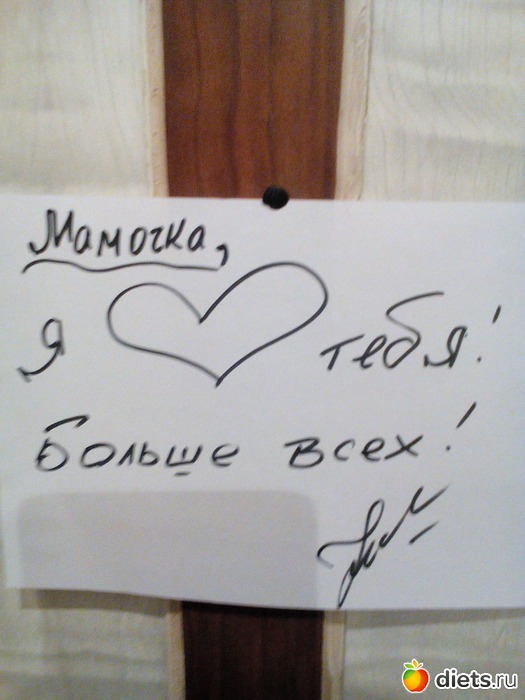 Мамочка,
я тебя!
Больше всех!
diets.ru